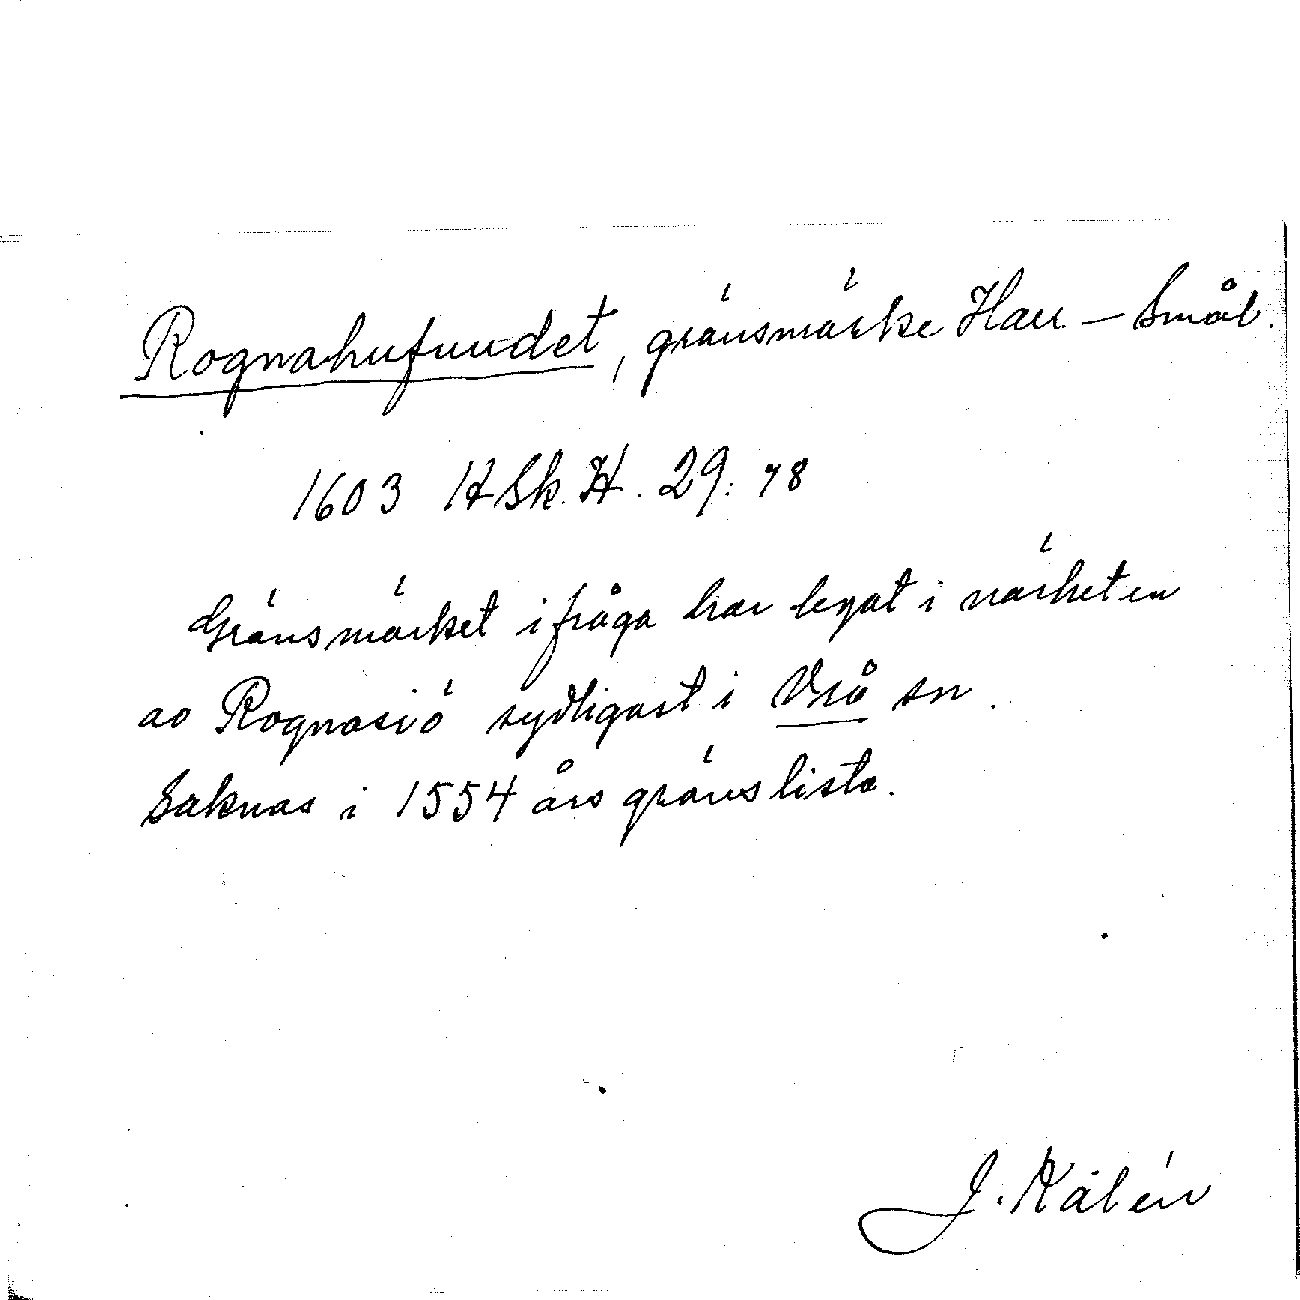 Rognahufuudet, gränsmärke Hall – Smål.
1603 HSk.H. 29: 78
Gränsmärket ifråga har legat i närheten
av Rognasiö sydligast i Vrå sn.
Saknas i 1554 års gränslista.
J. Kalén